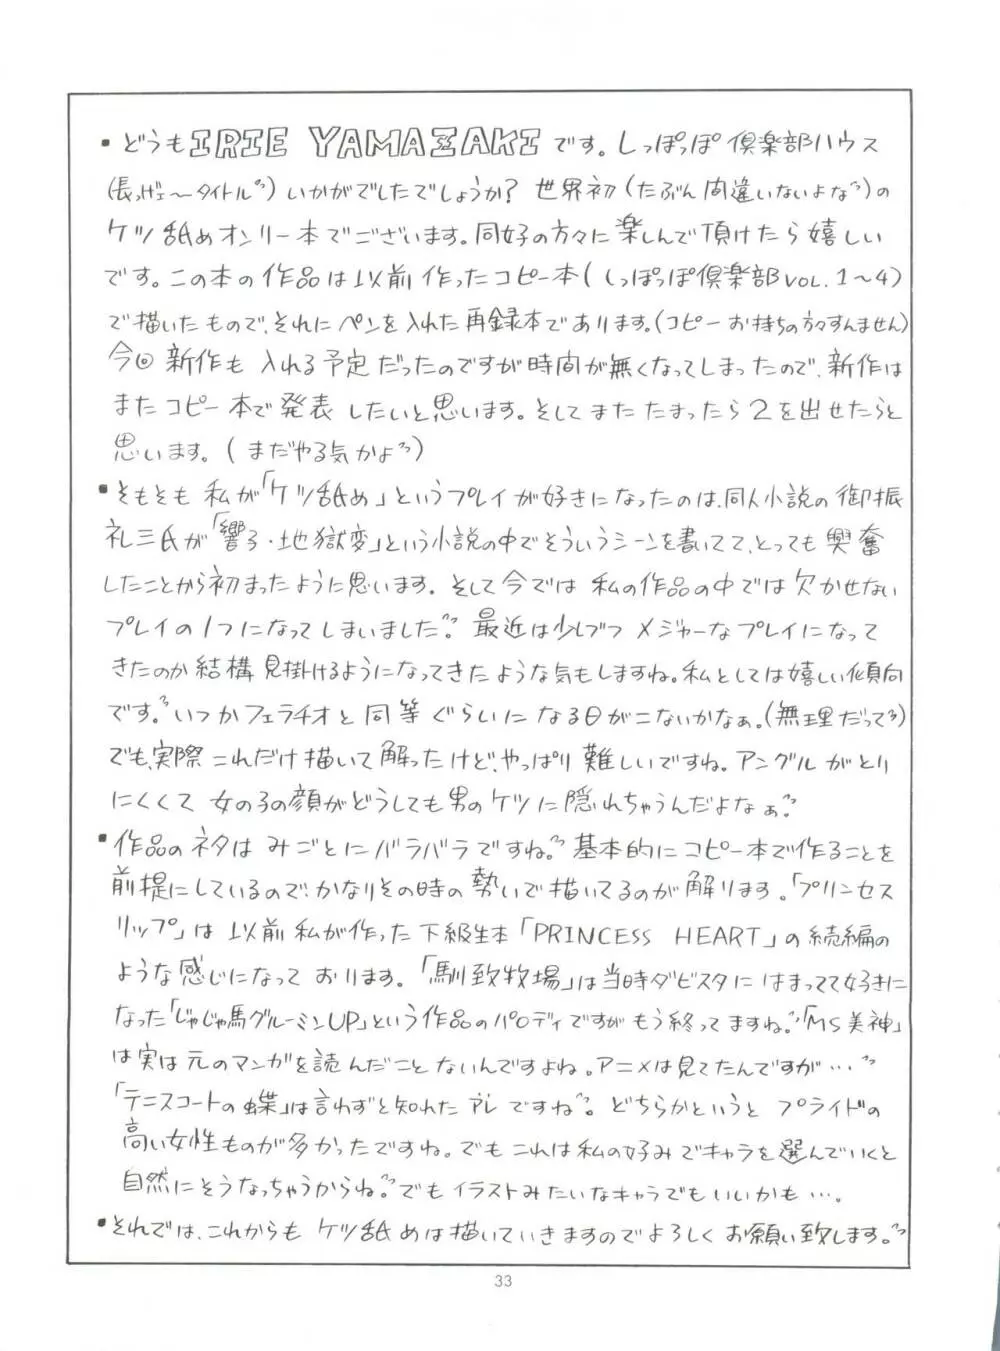 ・どうもIRIE YAMAZAKIです。しっぽっぽ倶楽部ハウス
(長っげェ〜タイトル") いかがでしたでしょうか? 世界初 (たぶん間違いないよな") の
ケツ舐めオンリー本でございます。同好の方々に楽しんで頂けたら嬉しい
です。この本の作品は以前作ったコピー本 (しっぽっぽ倶楽部VOL.1〜4)
で描いたもので、それにペンを入れた再録本であります。(コピーお持ちの方々すんません)
今回新作も入れる予定だったのですが時間が無くなってしまったので、新作は
またコピー本で発表したいと思います。そしてまたたまったら2を出せたらと
思います。(まだやる気かよ")
・そもそも私が「ケツ舐め」というプレイが好きになったのは、同人小説の御振
礼三氏が「響子・地獄変」という小説の中でそういうシーンを書いてて、とっても興奮
したことから初まったように思います。そして今では私の作品の中では欠かせない
プレイの1つになってしまいました"。最近は少しづつメジャーなプレイになって
きたのか結構見掛けるようになってきたような気もしますね。私としては嬉しい傾向
です。"いつかフェラチオと同等ぐらいになる日がこないかなぁ。(無理だって")
でも、実際これだけ描いて解ったけど、やっぱり難しいですね。アングルがとり
にくくて女の子の顔がどうしても男のケツに隠れちゃうんだよなぁ"。
・作品のネタはみごとにバラバラですね"。基本的にコピー本で作ることを
前提にしているので、かなりその時の勢いで描いてるのが解ります。「プリンセス
リップ」は以前私が作った下級生本「PRINCESS HEART」の続編の
ような感じになっております。「馴致牧場」は当時ダビスタにはまってて好きに
なった「じゃじゃ馬グルーミンUP」という作品のパロディですがもう終ってますね。"「MS美神」
は実は元のマンガを読んだことないんですよね。アニメは見てたんですが…"
「テニスコートの蝶」は言わずと知れたアレですね"。どちらかというとプライドの
高い女性ものが多かったですね。でもこれは私の好みでキャラを選んでいくと
自然にそうなっちゃうからね"。でもイラストみたいなキャラでもいいかも…。
・それでは、これからもケツ舐めは描いていきますのでよろしくお願い致します。"
33